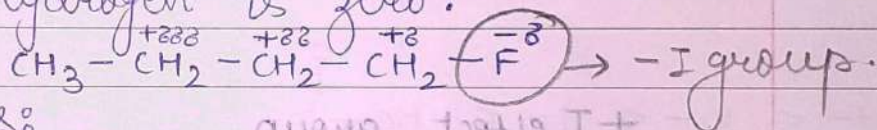 hydrogen is zero.
+δδδ +δδ +δ -δ
CH₃ - CH₂ - CH₂ - CH₂ - F → - I group.